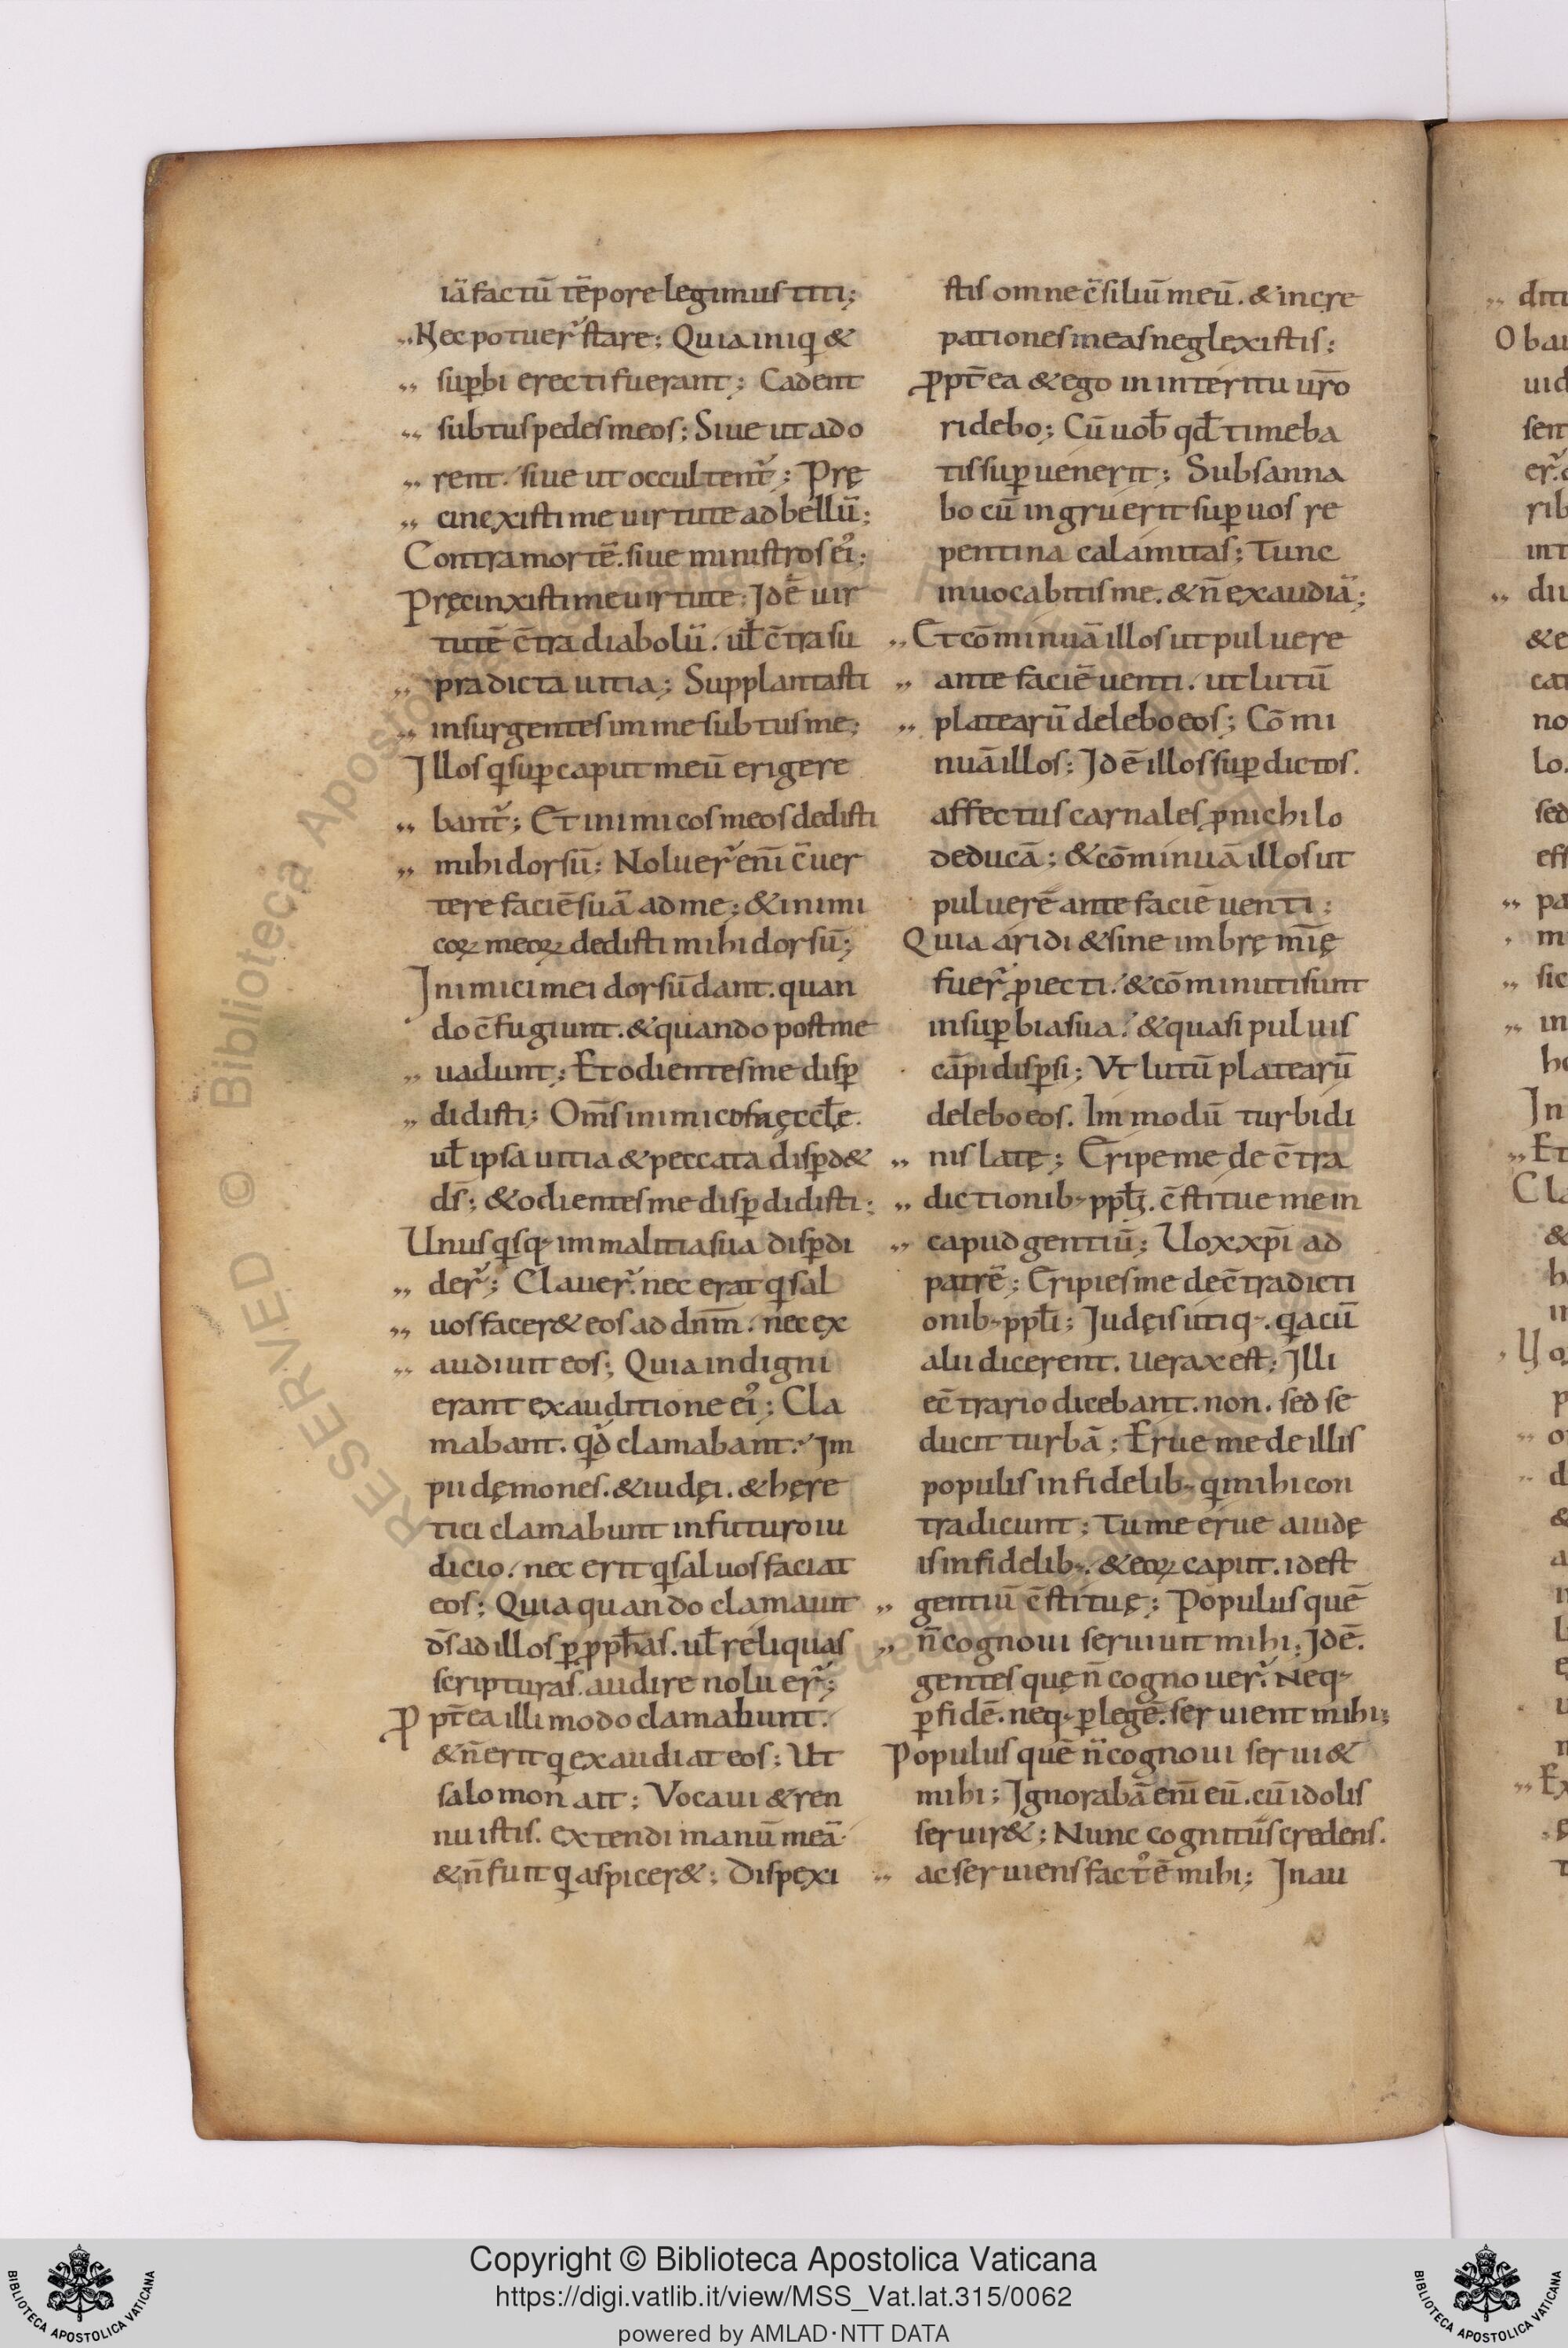 iā factū tēpore legimus titi;
„ Nec potuer̃ stare; Quia iniq &
„ suꝑbi erecti fuerant; Cadent
„ subtus pedes meos; Siue ut ado
„ rent. siue ut occultent̃; Prę
„ cinexisti me uirtute ad bellū;
Contra mortē. siue ministros eiꝰ;
Pręcinxisti me uirtute; Idē uir
tutē c̄tra diabolū. uł c̄tra su
„ pradicta uitia; Supplantasti
„ insurgentes im me subtus me;
Illos q suꝑ caput meū erigere
„ bant̃; Et inimicos meos dedisti
„ mihi dorsū; Noluer̃ eni᷑ c̄uer
tere faciē suā ad me; & inimi
coꝝ meoꝝ dedisti mihi dorsū;
Inimici mei dorsū dant. quan
do c̄fugiunt. & quando post me
„ uadunt; Et odientes me disꝑ
„ didisti; Om̄s inimicos meos ęccłę.
uł ipsa uitia & peccata disꝑd&
ds̄; & odientes me disꝑdidisti;
Unusqsq; im malitia sua disꝑdi
„ der̃; Clauer̃. nec erat q sal
„ uos facer& eos ad dnm̄. nec ex
„ audiuit eos; Quia indigni
erant exauditione eiꝰ; Cla
mabant. qđ clamabant. Im
pii dęmones. & iudęi. & herę
tici clamabunt in futuro iu
dicio. nec erit q saluos faciat
eos; Quia quando clamauit
ds̄ ad illos ꝑ ꝓph̄as. uł reliquas
scripturas. audire noluer̃;
Ꝓpt̄ea illi modo clamabunt.
& n̄ erit q exaudiat eos; Ut
salomon ait; Vocaui & ren
nuistis. extendi manū meā.
& n̄ fuit q aspicer&; Dispexi
stis omne c̄siliū meū. & incre
pationes meas neglexistis;
Ꝓpt̄ea & ego in interitu ur̄o
ridebo; Cū uob̄ qđ timeba
tis suꝑuenerit; Subsanna
bo cū ingruerit suꝑ uos re
pentina calamitas; Tunc
inuocabitis me. & n̄ exaudiā;
„ Et cōminuā illos ut puluere
„ ante faciē uenti. ut lutū
„ platearū delebo eos; Cōmi
nuā illos; Idē illos suꝑdictos.
affectus carnales ꝓ nichilo
deducā; & cōminuā illos ut
puluerē ante faciē uenti;
Quia aridi & sine imbrę m̄ię
fuer̃ ꝓiecti. & cōminuti sunt
in suꝑbia sua. & quasi puluis
cāpi disꝑsi; Vt lutū platearū
delebo eos. Im modū turbidi
„ nis latę; Eripe me de c̄tra
„ dictionib; ppłi. c̄stitue me in
„ capud gentiū; Uox xp̄i ad
patrē; Eripies me de c̄tradicti
onib; ppłi; Judęis utiq;. q a cū
alii dicerent. uerax est; Illi
e c̄trario dicebant. non. sed se
ducit turbā; Erue me de illis
populis infidelib; q mihi con
tradicunt; Tu me erue a iudę
is infidelib;. & eoꝝ caput. id est
„ gentiū c̄stituę; Populus quē
„ n̄ cognoui seruiuit mihi; Idē.
gentes quę n̄ cognouer̃. Neq;
ꝑ fidē. neq; ꝑ legē. seruient mihi;
Populus quē n̄ cognoui serui&
mihi; Ignorabā eni᷑ eū. cū idolis
seruir&; Nunc cognitūs credens.
„ ac seruiens factꝰ ē mihi; In au
Copyright © Biblioteca Apostolica Vaticana
https://digi.vatlib.it/view/MSS_Vat.lat.315/0062
powered by AMLAD·NTT DATA
BIBLIOTECA APOSTOLICA VATICANA
BIBLIOTECA APOSTOLICA VATICANA